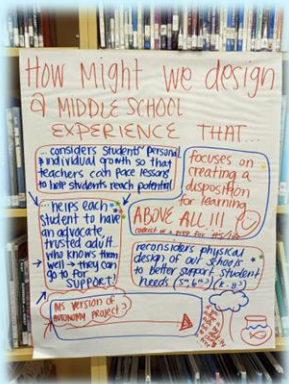 How Might we design
a MIDDLE SCHOOL
EXPERIENCE THAT...
...considers students' personal
individual growth so that
teachers can pace lessons
to help students reach potential
focuses on
creating a
disposition
for learning
ABOVE ALL!!!
...helps each
student to have
an advocate,
trusted adult
who knows them
well → they can
go to for
SUPPORT?
reconsiders physical
design of our schools
to better support student
needs
MS version of
AUTONOMY PROJECT?